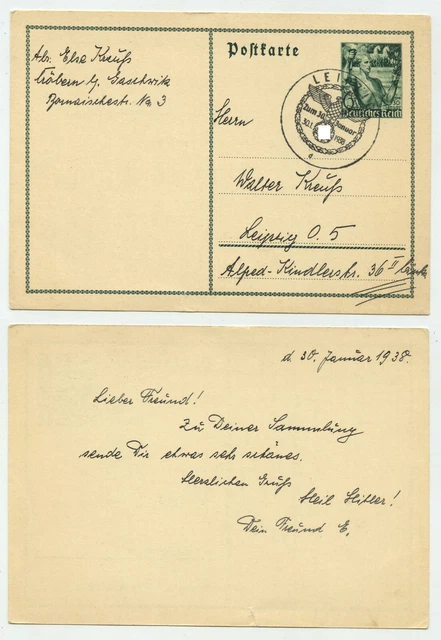 Abs. Else Kreuß
Cröbern b/ Gaschwitz
Bornaischestr. No 3
Postkarte
LEI
Zum 30. Januar
30.1.
1938
Deutsches Reich
Herrn
Walter Kreuß
Leipzig O. 5
Alfred-Kindlerstr. 36 II links
d. 30. Januar 1938.
Lieber Freund!
Zu Deiner Sammlung
sende Dir etwas sehr schönes.
Herzlichen Gruß
Heil Hitler!
Dein Freund E.